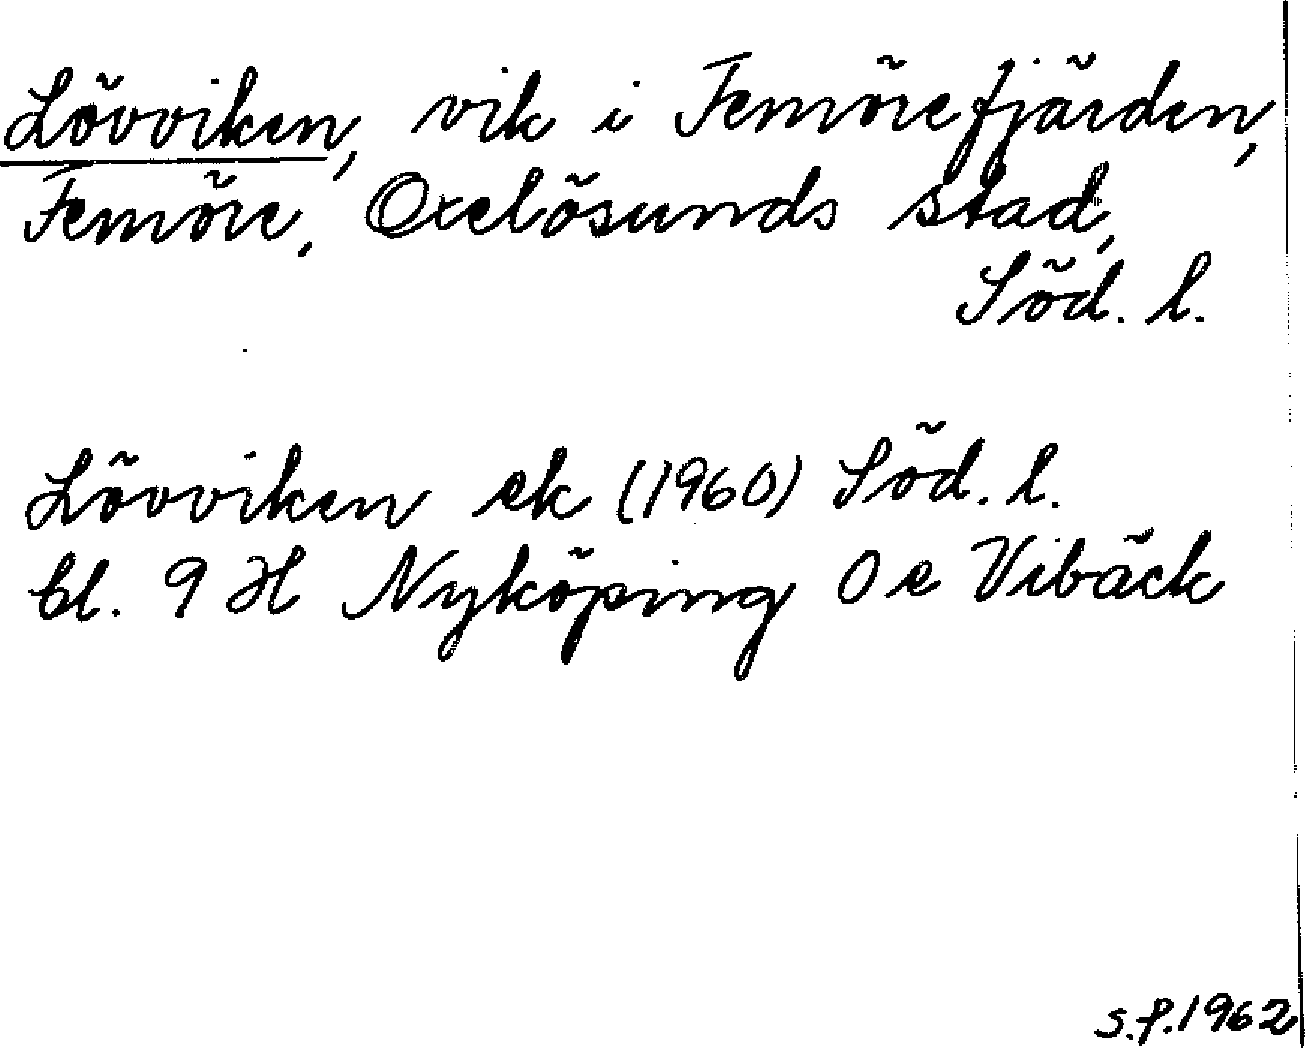 Lövviken, vik i Femörefjärden,
Femöre, Oxelösunds stad,
Söd. l.
Lövviken ek (1960) Söd. l.
bl. 9 H Nyköping 0 e Vibäck
s.f. 1962